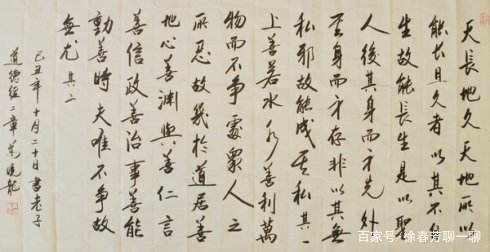 天長地久天地所以
能長且久者以其不自
生故能長生是以聖
人後其身而身先外
其身而身存非以其無
私邪故能成其私其一
上善若水水善利萬
物而不爭處眾人之
所惡故幾於道居善
地心善淵與善仁言
善信政善治事善能
動善時夫唯不爭故
無尤其二
己丑年十月二十日書老子
道德經二章曉龍
百家号/徐春芳聊一聊